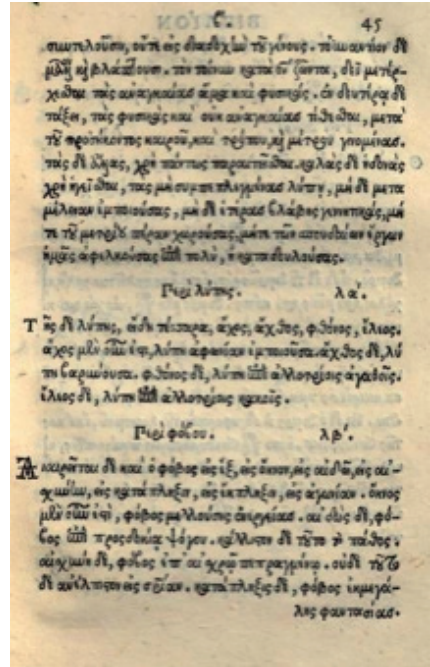 45
συντελοῦσιν, οὔτε εἰς διαδοχὴν τοῦ γένους. τοὐναντίον δὲ
μᾶλλον καὶ βλάπτουσι. τὸν τοίνυν κατὰ θεὸν ζῶντα, δεῖ μετέρ-
χεσθαι τὰς ἀναγκαίας ἅμα καὶ φυσικάς. ἐν δευτέρᾳ δὲ
τάξει, τὰς φυσικὰς καὶ οὐκ ἀναγκαίας τίθεσθαι, μετὰ
τοῦ προσήκοντος καιροῦ, καὶ τρόπου, καὶ μέτρου γινομένας.
τὰς δὲ ἄλλας, χρὴ πάντως παραιτεῖσθαι. καλὰς δὲ ἡδονὰς
χρὴ ἡγεῖσθαι, τὰς μὴ συμπεπλεγμένας λύπῃ, μὴ δὲ μετα
μέλειαν ἐμποιούσας, μὴ δὲ ἑτέρας βλάβης γεννητικάς, μή
τε τοῦ μέτρου πέραν χωρούσας, μήτε τῶν σπουδαίων ἔργων
ἡμᾶς ἀφελκούσας ἐπὶ πολύ, ἢ καταδουλούσας.
Περὶ λύπης. λα΄.
Τῆς δὲ λύπης, εἴδη τέσσαρα, ἄχος, ἄχθος, φθόνος, ἔλεος.
ἄχος μὲν οὖν ἐστι, λύπη ἀφωνίαν ἐμποιοῦσα. ἄχθος δὲ, λύ
πη βαρύνουσα. φθόνος δὲ, λύπη ἐπὶ ἀλλοτρίοις ἀγαθοῖς.
ἔλεος δὲ, λύπη ἐπὶ ἀλλοτρίοις κακοῖς.
Περὶ φόβου. λβ΄.
Διαιρεῖται δὲ καὶ ὁ φόβος εἰς ἓξ, εἰς ὄκνον, εἰς αἰδῶ, εἰς αἰ-
σχύνην, εἰς κατάπληξιν, εἰς ἔκπληξιν, εἰς ἀγωνίαν. ὄκνος
μὲν οὖν ἐστι, φόβος μελλούσης ἐνεργείας. αἰδὼς δὲ, φό-
βος ἐπὶ προσδοκίᾳ ψόγου. κάλλιστον δὲ τοῦτο τὸ πάθος.
αἰσχύνη δὲ, φόβος ἐπ' αἰσχρῷ πεπραγμένῳ. οὐδὲ τοῦτο
δὲ ἀνέλπιστον εἰς σωτηρίαν. κατάπληξις δὲ, φόβος ἐκ μεγά-
λης φαντασίας.